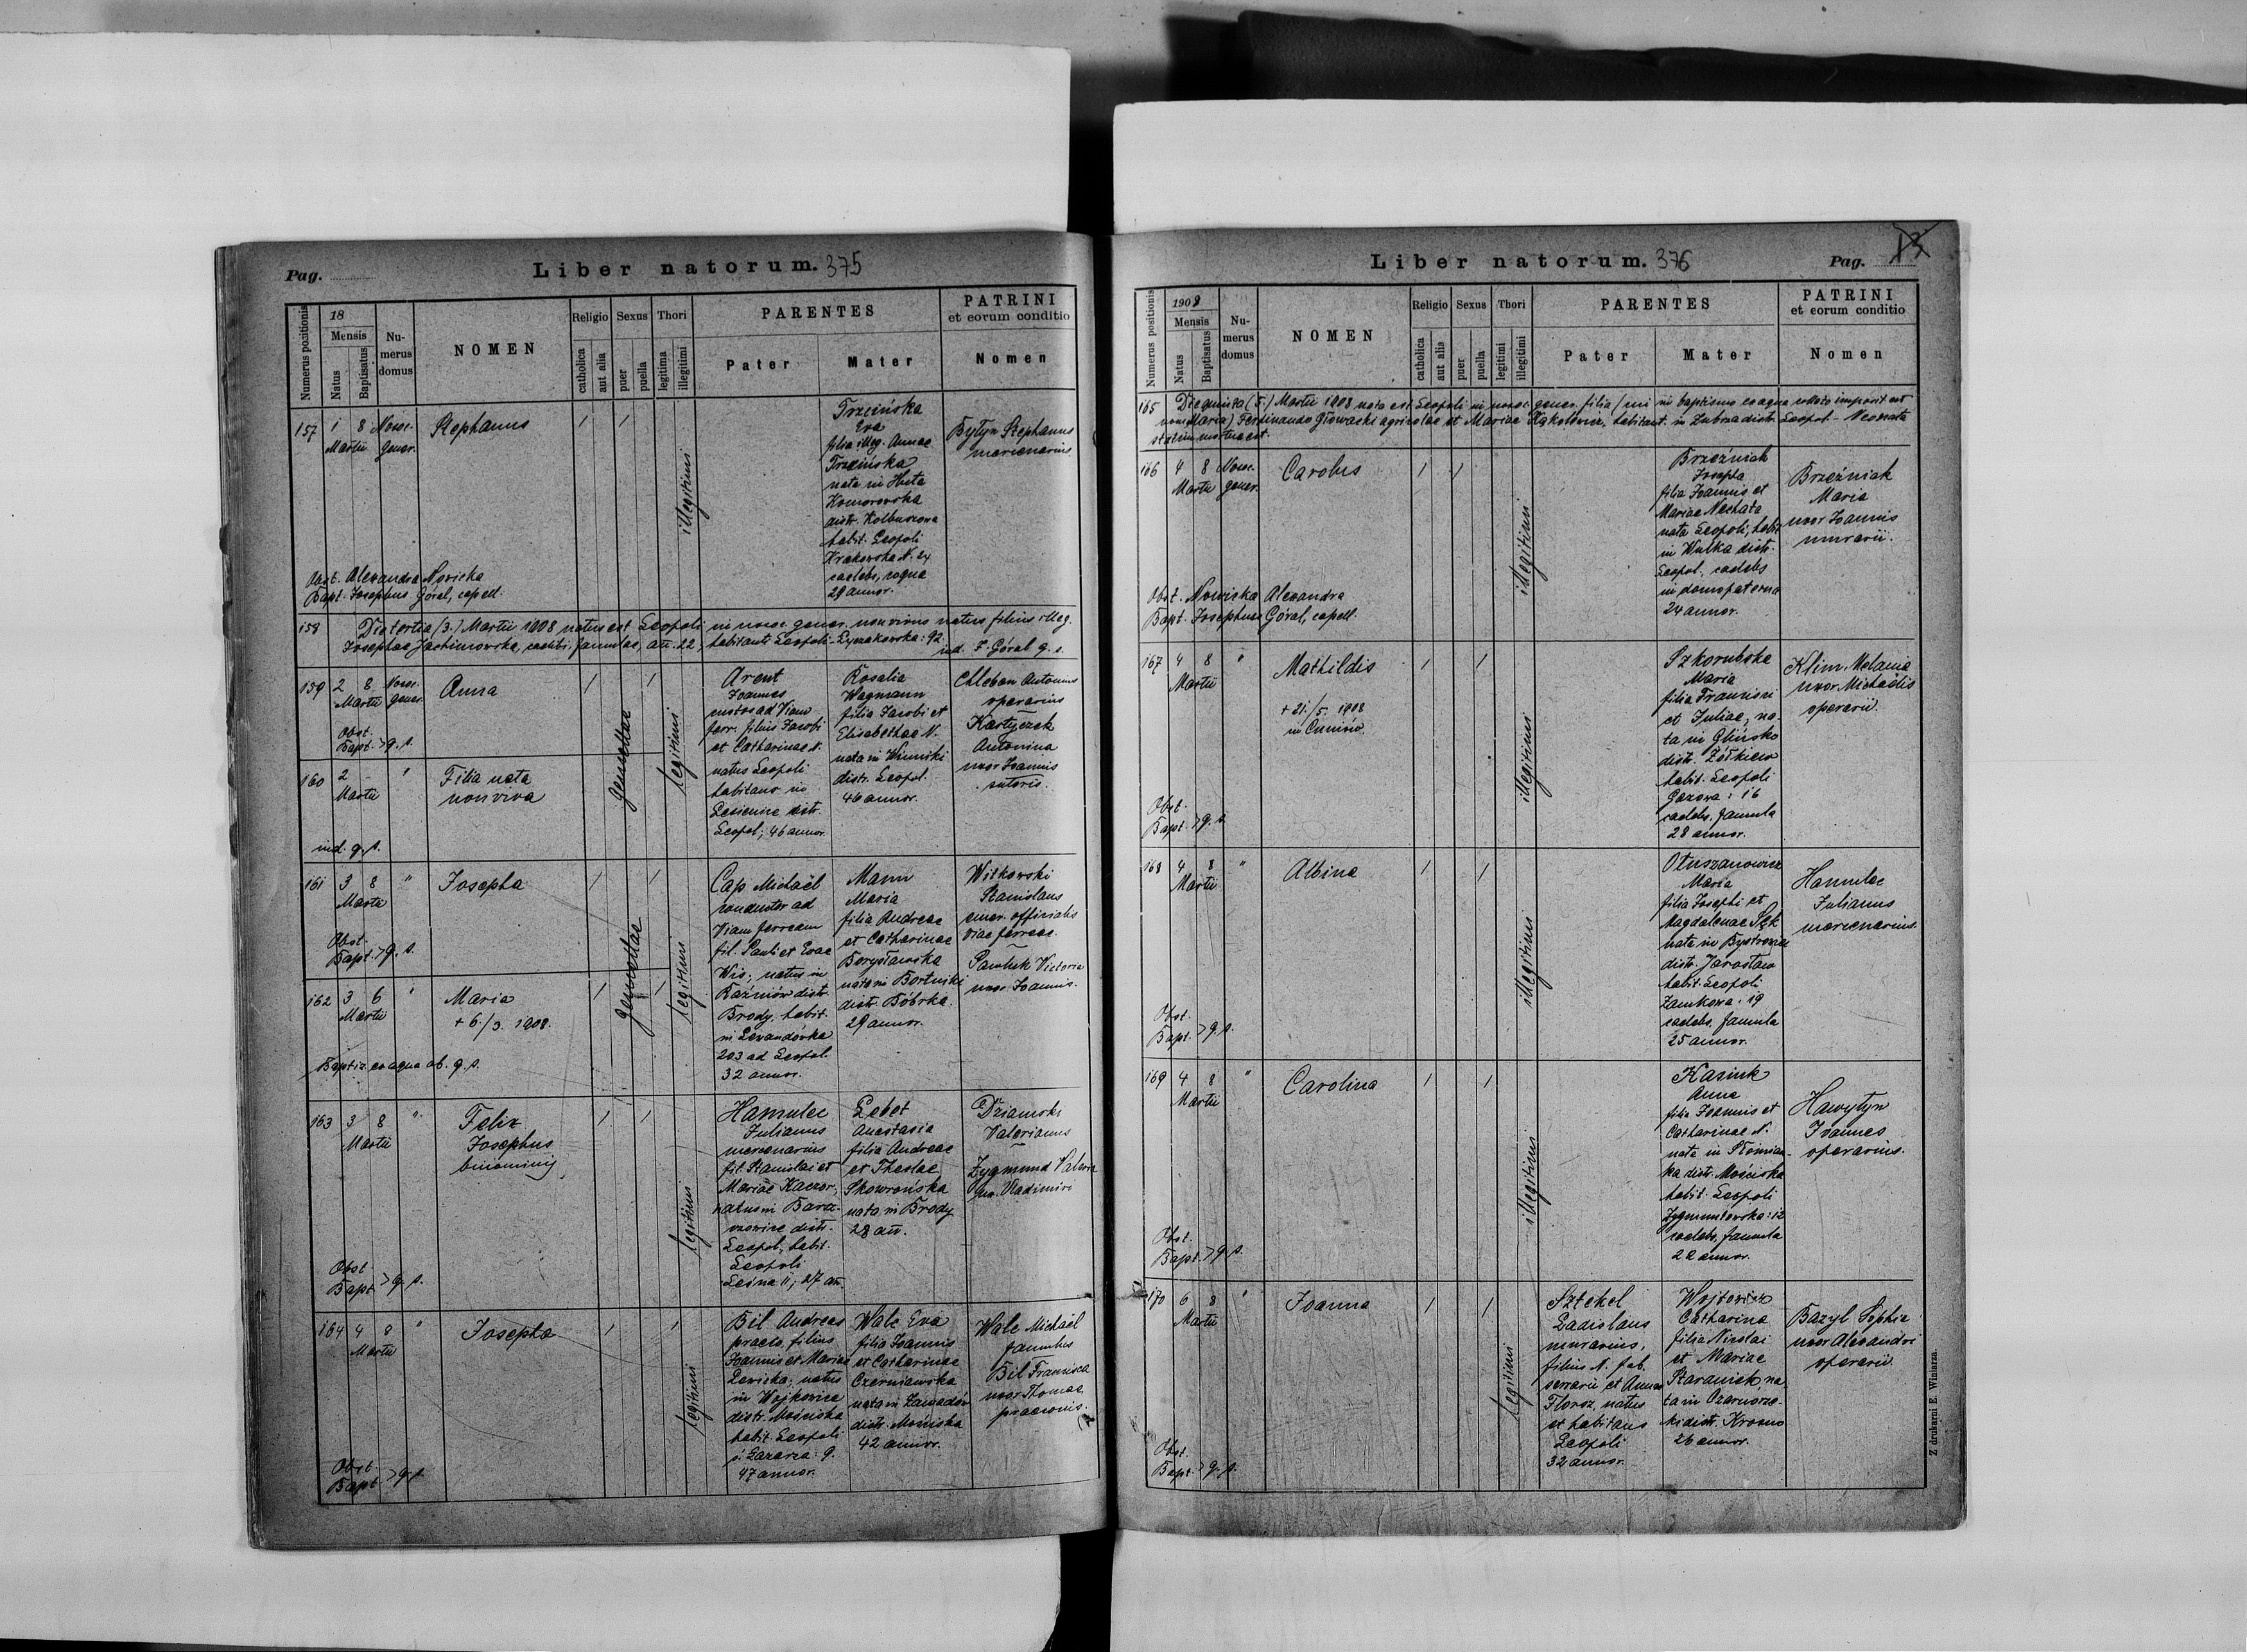 Pag.
Liber natorum. 375
Numerus positionis
18
Mensis
Natus
Baptisatus
Nu-
merus
domus
NOMEN
Religio
catholica
aut alia
Sexus
puer
puella
Thori
legitima
illegitimi
PARENTES
Pater
Mater
PATRINI
et eorum conditio
Nomen
157
1 8 Nosoc.
Martii gener.
Stephanus
illegitimi
Trzcińska
Eva
filia illeg. Annae
Trzcińska
nata in Huta
Komorowska
distr. Kolbuszowa
habit. Leopoli
Krakowska N. 24
caelebs, coqua
29 annor.
Bytyn Stephanus
mercenarius
Obst. Alexandra Nowicka
Bapt. Josephus Góral, capell.
158 Die tertia (3.) Martii 1908 natus est Leopoli in nosoc. gener. non vivus natus filius illeg.
Josephae Jachimowska, caelibi, famulae, ann. 22, habitanti Leopoli - Łyczakowska: 92.
ind. J. Góral q. s.
159
2 8 Nosoc.
Martii gener.
Anna
gemellae
legitimi
Arent
Joannes
custos ad Viam
ferr. filius Jacobi
et Catharinae N.
natus Leopoli
habitans in
Lesienice distr.
Leopol; 46 annor.
Rosalia
Wagmann
filia Jacobi et
Elisabethae N.
nata in Winniki
distr. Leopol.
46 annor.
Chleban Antonius
operarius
Kartyczek
Antonina
uxor Joannis
sutoris.
Obst.
Bapt. > q. s.
160
2 -
Martii
Filia nata
non viva
ind. q. s.
161
3 8 "
Martii
Josepha
gemellae
legitimi
Cap Michaël
conductor ad
Viam ferream
fil. Pauli et Evae
Wis; natus in
Kaźmiów distr.
Brody, habit.
in Lewandówka
203 ad Leopol.
32 annor.
Mann
Maria
filia Andreae
et Catharinae
Borysławska
nata in Bortniki
distr. Bóbrka
29 annor.
Witkowski
Stanislaus
emer. officialis
viae ferreae.
Pawluk Victoria
uxor Joannis.
Obst.
Bapt. > q. s.
162
3 6
Martii
Maria
+ 6/3. 1908.
Baptiz. ex aqua ab. q. s.
163
3 8 "
Martii
Felix
Josephus
binominis
legitimi
Hamulec
Julianus
mercenarius
fil. Stanislai et
Mariae Kaczor,
natus in Barsz-
czowice distr.
Leopol., habit.
Leopoli
Leśna 11; 27 ann.
Lebet
Anastasia
filia Andreae
et Theclae
Skowrońska
nata in Brody
28 ann.
Dziamski
Valerianus
Zygmund Valeria
ux. Vladimiri
Obst
Bapt > q. s.
164
4 8 "
Martii
Josepha
legitimi
Bil Andreas
praeco, filius
Joannis et Mariae
Lewicka; natus
in Wojkowice
distr. Mościska
habit. Leopoli
ś: Łazarza: 9.
47 annor.
Walc Eva
filia Joannis
et Catharinae
Czerniawska
nata in Zawadów
distr. Mościska
42 annor.
Walc Michaël
famulus
Bil Francisca
uxor Thomae
praeconis.
Obst.
Bapt > q. s.
Liber natorum. 376
Pag. 13
Numerus positionis
1908
Mensis
Natus
Baptisatus
Nu-
merus
domus
NOMEN
Religio
catholica
aut alia
Sexus
puer
puella
Thori
legitimi
illegitimi
PARENTES
Pater
Mater
PATRINI
et eorum conditio
Nomen
165 Die quinta (5.) Martii 1908 nata est Leopoli in nosoc. gener. filia (cui in baptismo ex aqua collato imposit. est
nomen Maria) Ferdinando Głowacki agricolae et Mariae Kąkolewicz, habitant. in Zubrza distr. Leopol. - Neonata
statim mortua est.
166
4 8 Nosoc.
Martii gener.
Carolus
illegitimi
Brzeźniak
Josepha
filia Joannis et
Mariae Nechata
nata Leopoli, habit.
in Wulka distr.
Leopol., caelebs
in domo paterna
24 annor.
Brzeźniak
Maria
uxor Joannis
murarii.
Obst. Nowicka Alexandra
Bapt. Josephus Góral, capell.
167
4 8 "
Martii
Mathildis
+ 21./5. 1908
in Cuniów
illegitimi
Szkorubska
Maria
filia Francisci
et Juliae, na-
ta in Glińsko
distr. Żółkiew
habit. Leopoli
Gazowa: 16
caelebs, famula
28 annor.
Klim Melania
uxor Michaëlis
operarii.
Obst.
Bapt. > q. s.
168
4 8 "
Martii
Albina
illegitimi
Otuszanowicz
Maria
filia Josephi et
Magdalenae Sęk
nata in Bystrowice
distr. Jarosław
habit. Leopoli
Zamkowa: 19
caelebs, famula
25 annor.
Hamulec
Julianus
mercenarius.
Obst.
Bapt. > q. s.
169
4 8 "
Martii
Carolina
illegitimi
Kasiuk
Anna
filia Joannis et
Catharinae N.
nata in Słomian-
ka distr. Mościska
habit. Leopoli
Zygmuntowska: 12
caelebs, famula
22 annor.
Hawytyn
Joannes
operarius.
Obst.
Bapt. > q. s.
170
6 8 "
Martii
Joanna
legitimi
Sztekel
Ladislaus
murarius,
filius N. fab.
serrarii et Annae
Floroz, natus
et habitans
Leopoli
32 annor.
Wojtowicz
Catharina
filia Nicolai
et Mariae
Staraniek, na-
ta in Czarnorze-
ki distr. Krosno
26 annor.
Bazyl Sophia
uxor Alexandri
operarii.
Obst.
Bapt. > q. s.
Z drukarni E. Winiarza.